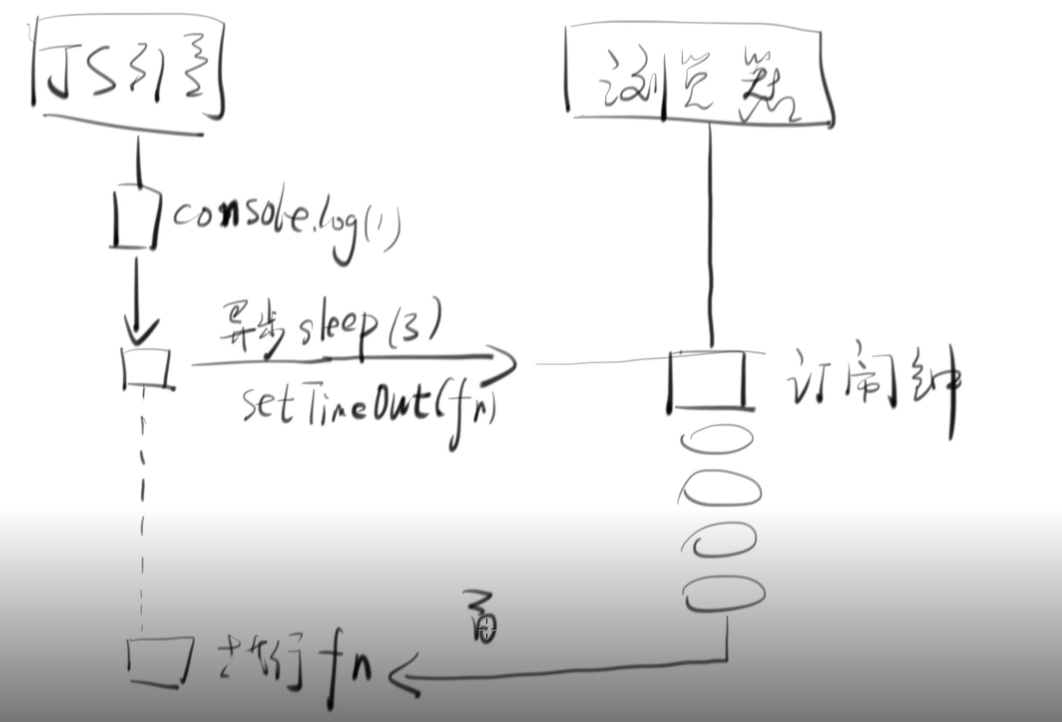 JS引擎
浏览器
console.log(1)
异步sleep(3)
setTimeOut(fn)
订闹钟
执行fn